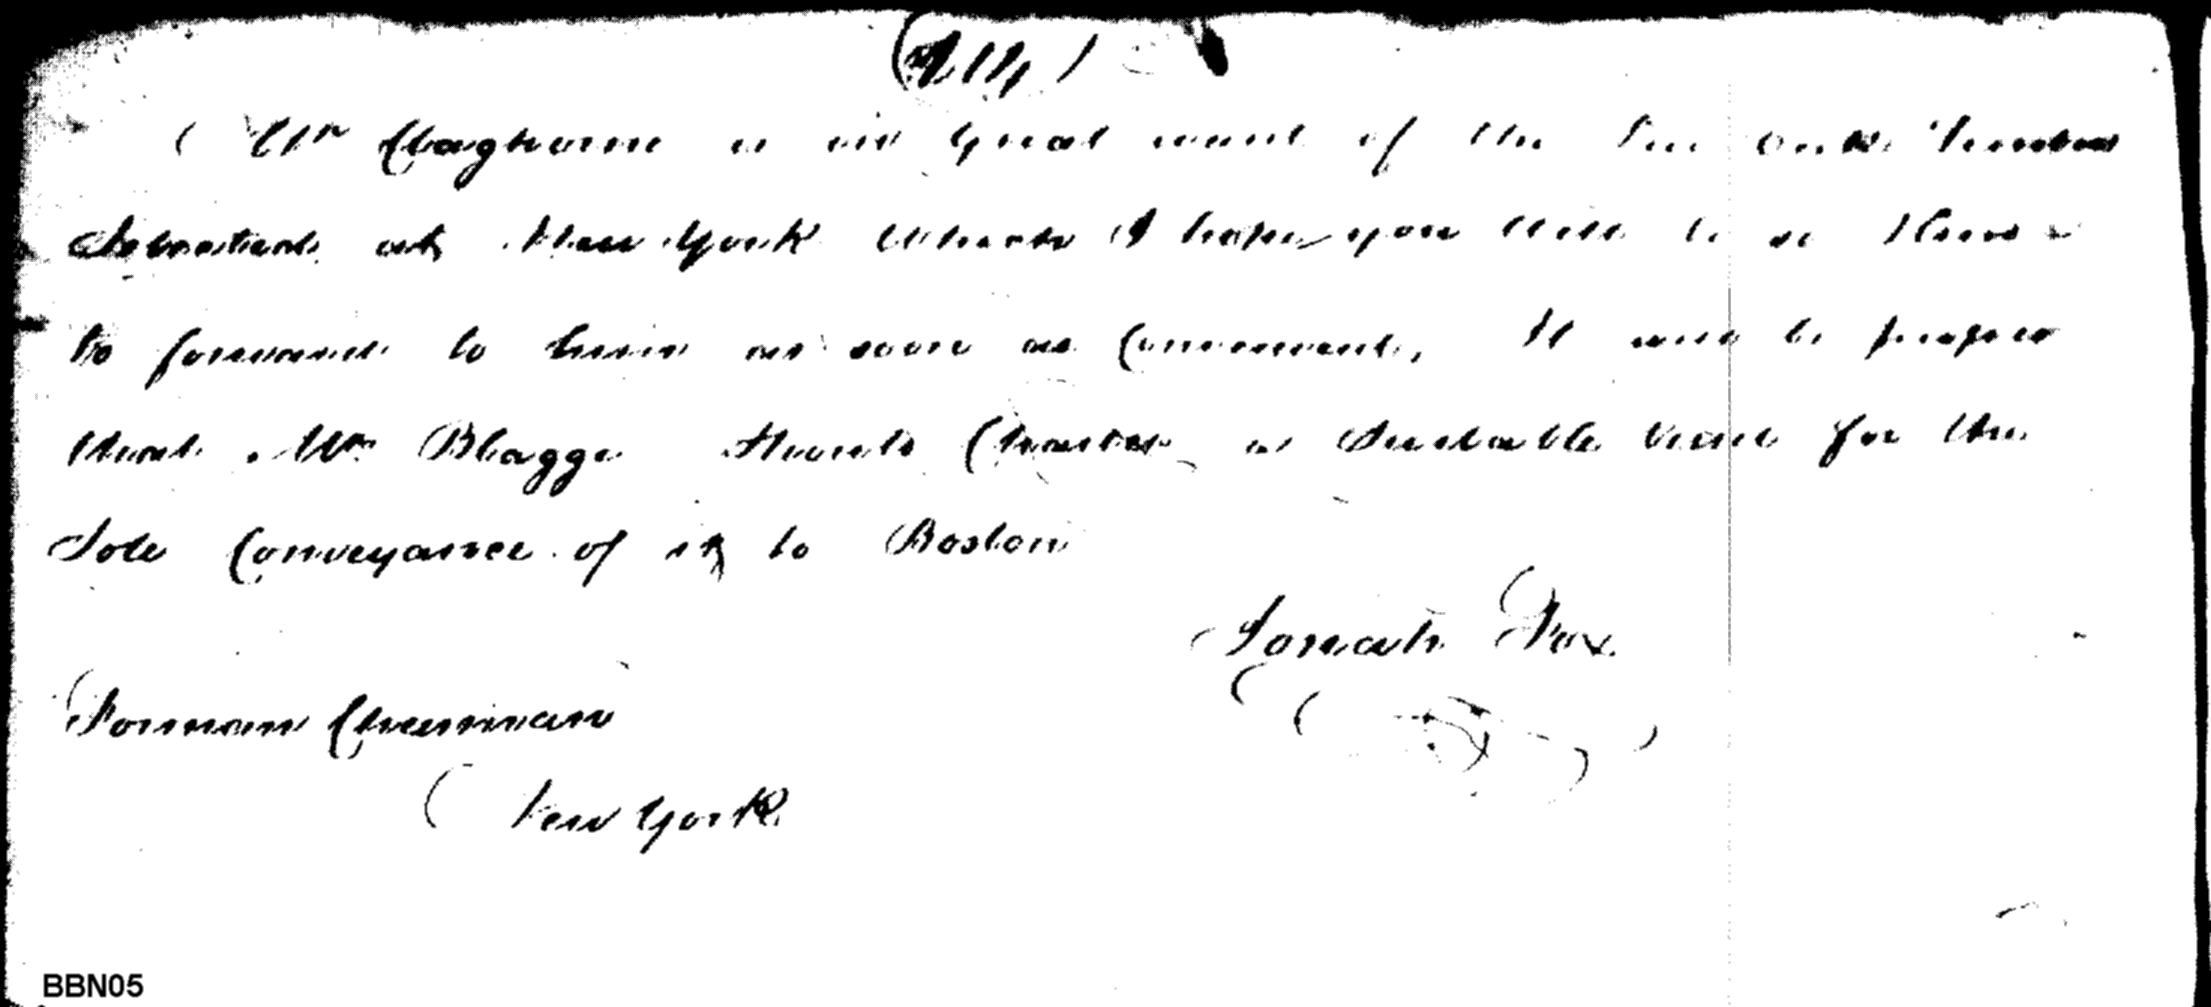 (214)
Mr Claghorne is in Great want of the Live Oak Timber
at New York Which I hope you Will be so Kind
to forward to him as soon as Convenient, It will be proper
that Mr Blagge Should Charter a Suitable Vessel for the
Sole Conveyance of it to Boston
Josiah Fox
Forman Cheesman
New York
BBN05